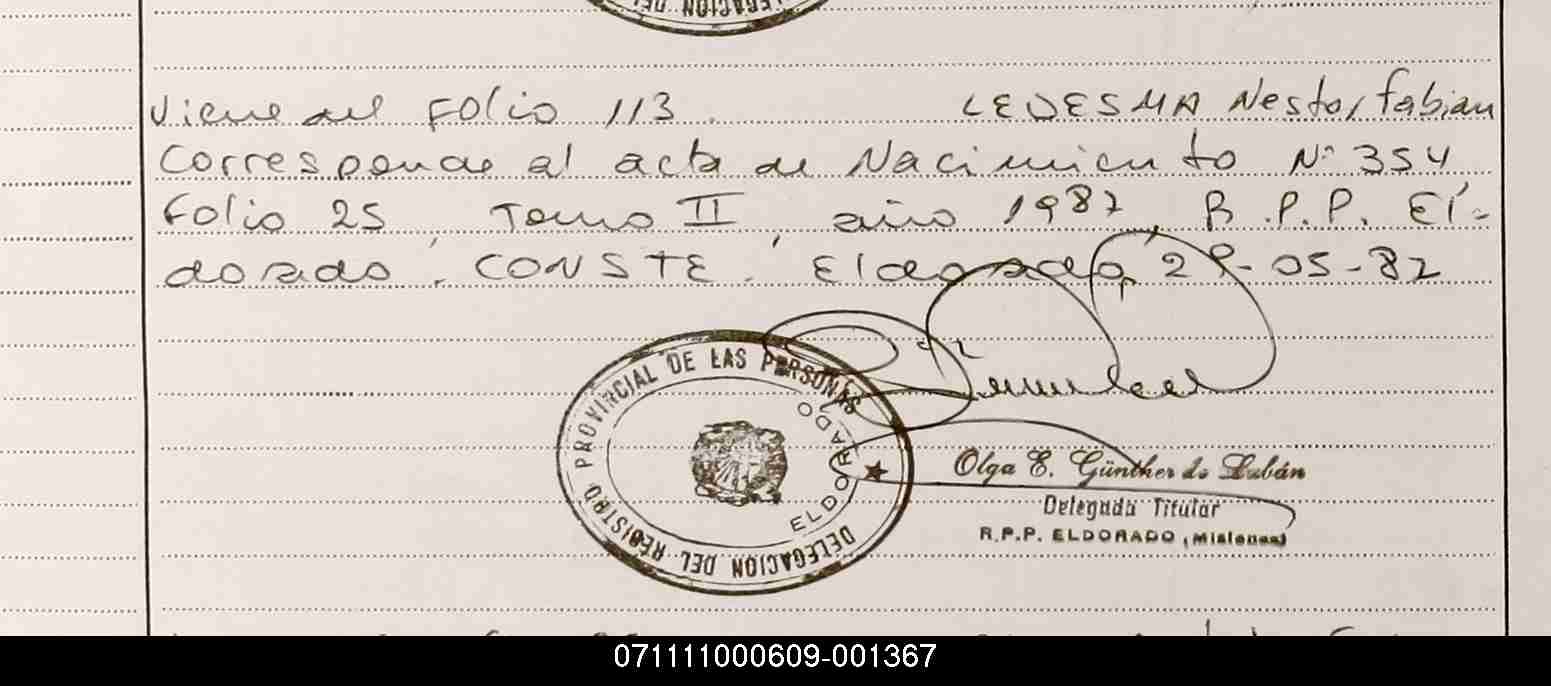 DELEGACION DEL
Viene del Folio 113. LEDESMA Nestor Fabian
Corresponde al acta de Nacimiento Nº 354
Folio 25, Tomo II, año 1987, R.P.P. El-
dorado. CONSTE. Eldorado, 29-05-87
DELEGACION DEL REGISTRO PROVINCIAL DE LAS PERSONAS
ELDORADO
Olga E. Günther de Lubán
Delegada Titular
R.P.P. ELDORADO (Misiones)
071111000609-001367